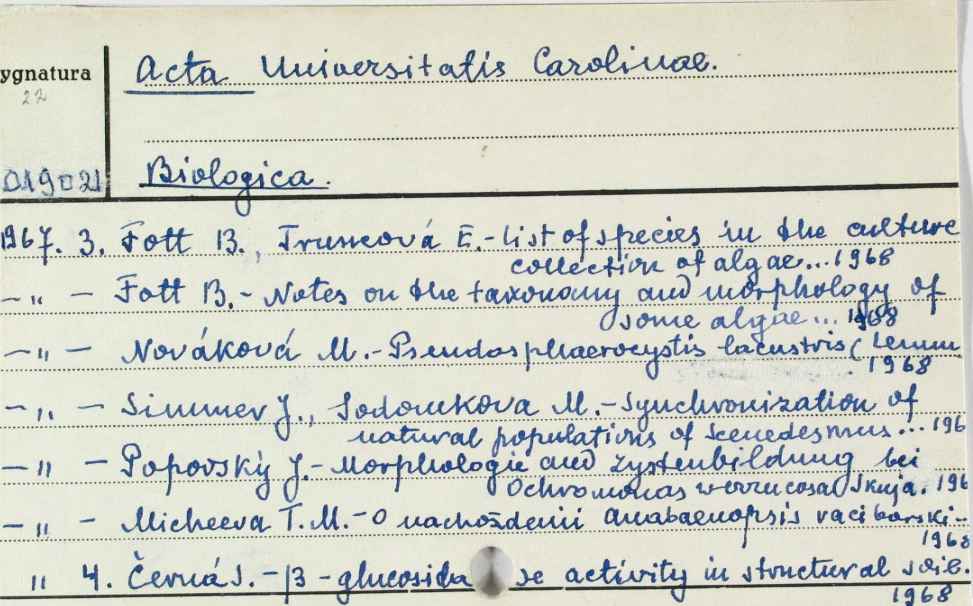 ygnatura
Acta Universitatis Carolinae.
22
019021
Biologica.
1967. 3. Fott B., Truncová E.-list of species in the culture
collection of algae...1968
-"- Fott B.- Notes on the taxonomy and morphology of
some algae... 1968
-"- Nováková M.-Pseudosphaerocystis lacustris (Lemm.
1968
-"- Simmer J., Sodomkova M.-Synchronization of
natural populations of Scenedesmus... 196
-"- Popovský J.-Morphologie and Zystenbildung bei
Ochromonas verrucosa Skuja. 196
-"- Micheeva T.M.-O nachoždenii anabaenopsis raciborski-
1968
" 4. Černá S.-β-glucosida se activity in structural soil.
1968